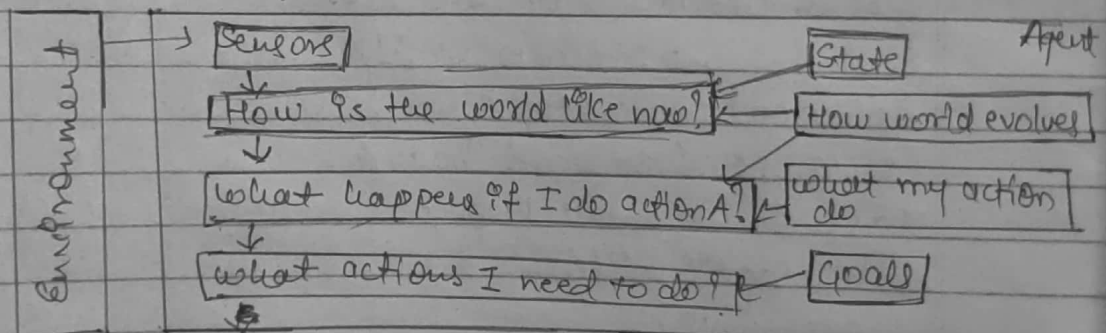 Environment
Agent
Sensors
State
How is the world like now?
How world evolves
What happens if I do action A?
what my action
do
What actions I need to do?
Goals